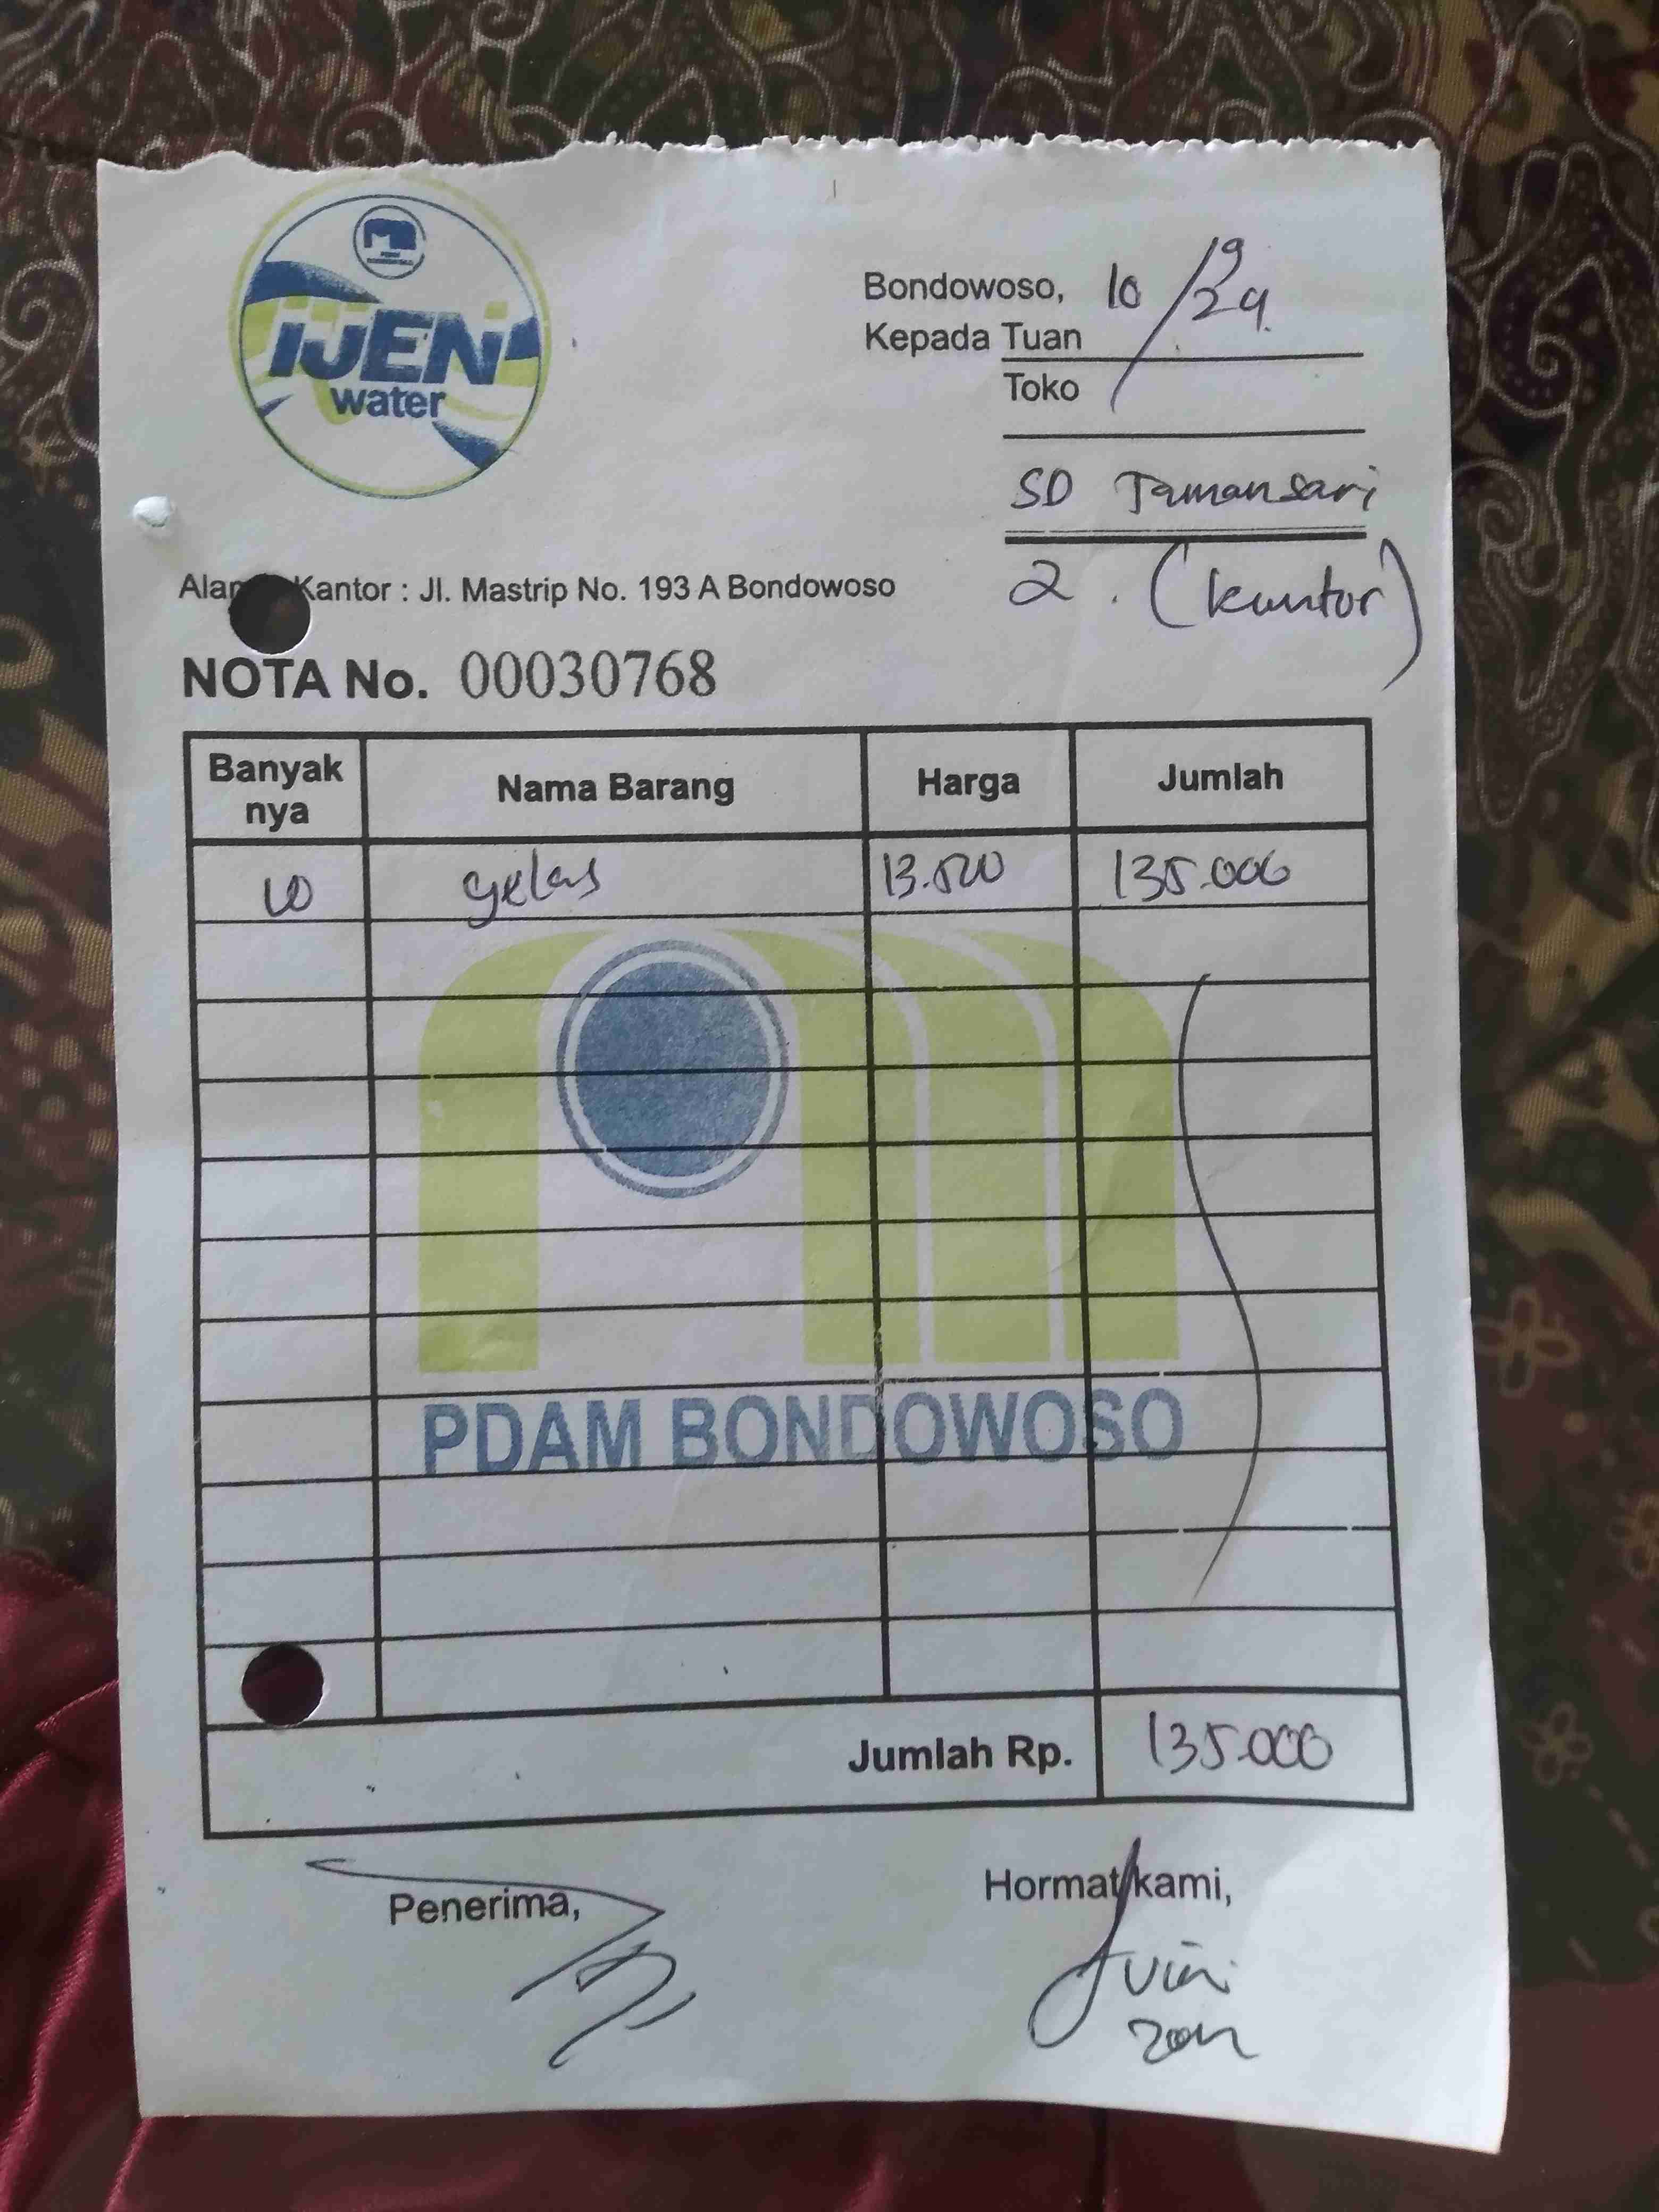 iJEN
water
Bondowoso, 10/9/24
Kepada Tuan
Toko
SD Tamansari
2. (kantor)
Kantor : Jl. Mastrip No. 193 A Bondowoso
NOTA No. 00030768
Banyak nya Nama Barang Harga Jumlah
10 gelas 13.500 135.000
PDAM BONDOWOSO
Jumlah Rp. 135.000
Penerima,
Hormat kami,